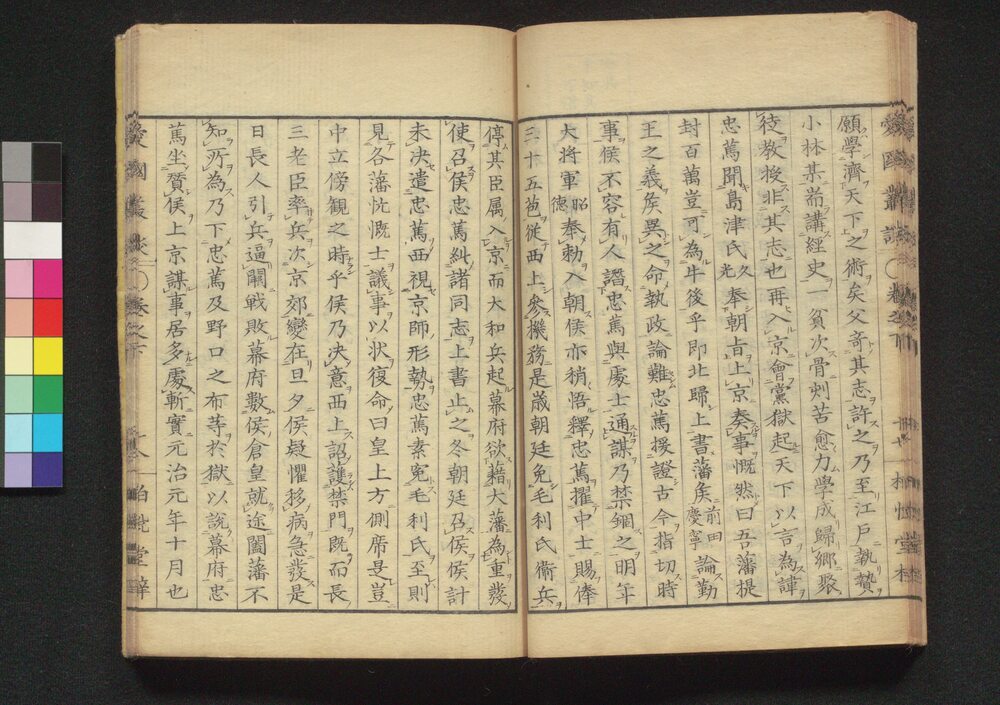 願學濟天下之術矣父奇其志許之乃至江戸執贄
小林某講經史一貧次骨刻苦愈力學成歸鄉聚
徒教授非其志也再入京會黨獄起天下以言為諱
忠篤聞島津氏久光奉朝旨上京奏事慨然曰吾藩提
封百萬豈可為牛後乎即北歸上書藩侯前田慶寧論勤
王之義侯異之命執政論難忠篤援證古今指切時
事侯不容有人譖忠篤與處士通謀乃禁錮之明年
大將軍昭德奉勅入朝侯亦稍悟釋忠篤擢中士賜俸
三十五苞從西上參機務是歲朝廷免毛利氏衛兵
停其臣属入京而大和兵起幕府欲藉大藩為重發
使召侯忠篤糾諸同志上書止之冬朝廷召侯侯計
未決遣忠篤西視京師形勢忠篤素寃毛利氏至則
見各藩忼慨士議事以狀復命曰皇上方側席是豈
中立傍観之時乎侯乃決意西上詔護禁門既而長
三老臣率兵次京郊變在旦夕侯疑懼移病急發是
日長人引兵逼闕戰敗幕府數侯侯倉皇就途闔藩不
知所為乃下忠篤及野口之布等於獄以說幕府忠
篤坐贊侯上京謀事居多處斬實元治元年十月也